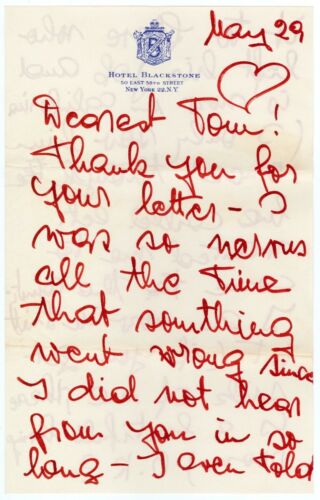 May 29
HOTEL BLACKSTONE
50 EAST 58TH STREET
NEW YORK 22, N.Y.
Dearest Tom!
Thank you for
your letter – I
was so nervous
all the Time
that something
went wrong since
I did not hear
from you in so
long – I even Told